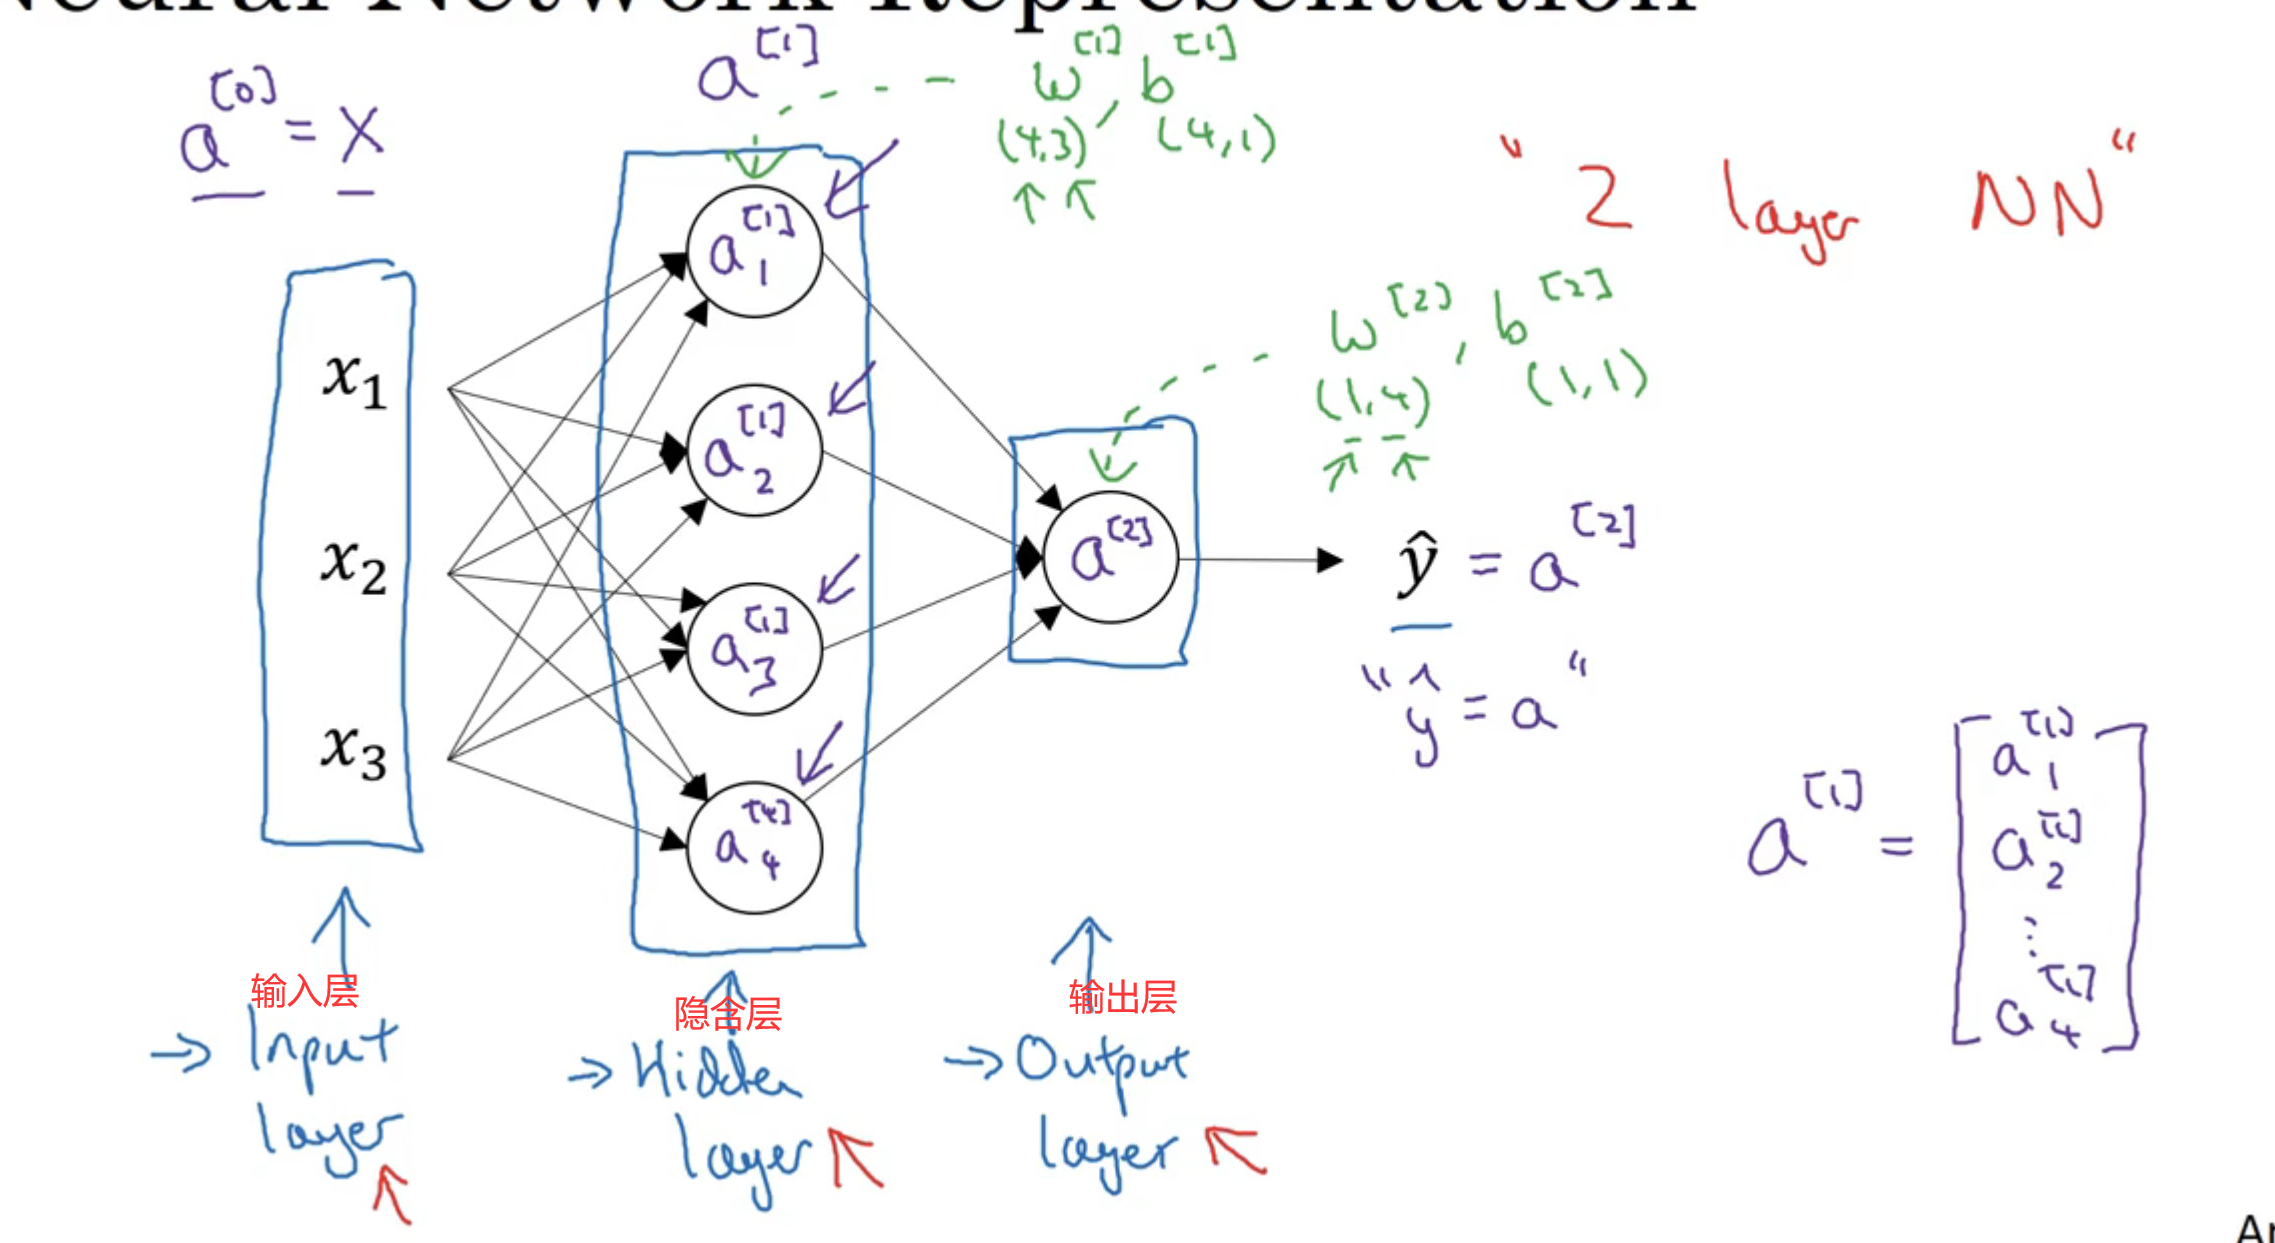 Neural Network Representation
a^[0] = X
a^[1]
w^[1], b^[1]
(4,3) (4,1)
"2 layer NN"
x₁
x₂
x₃
a₁^[1]
a₂^[1]
a₃^[1]
a₄^[4]
w^[2], b^[2]
(1,4) (1,1)
a^[2]
ŷ = a^[2]
"ŷ = a"
a^[1] = [a₁^[1] a₂^[1] ⋮ a₄^[1]]
输入层
→ Input layer
隐含层
→ Hidden layer
输出层
→ Output layer